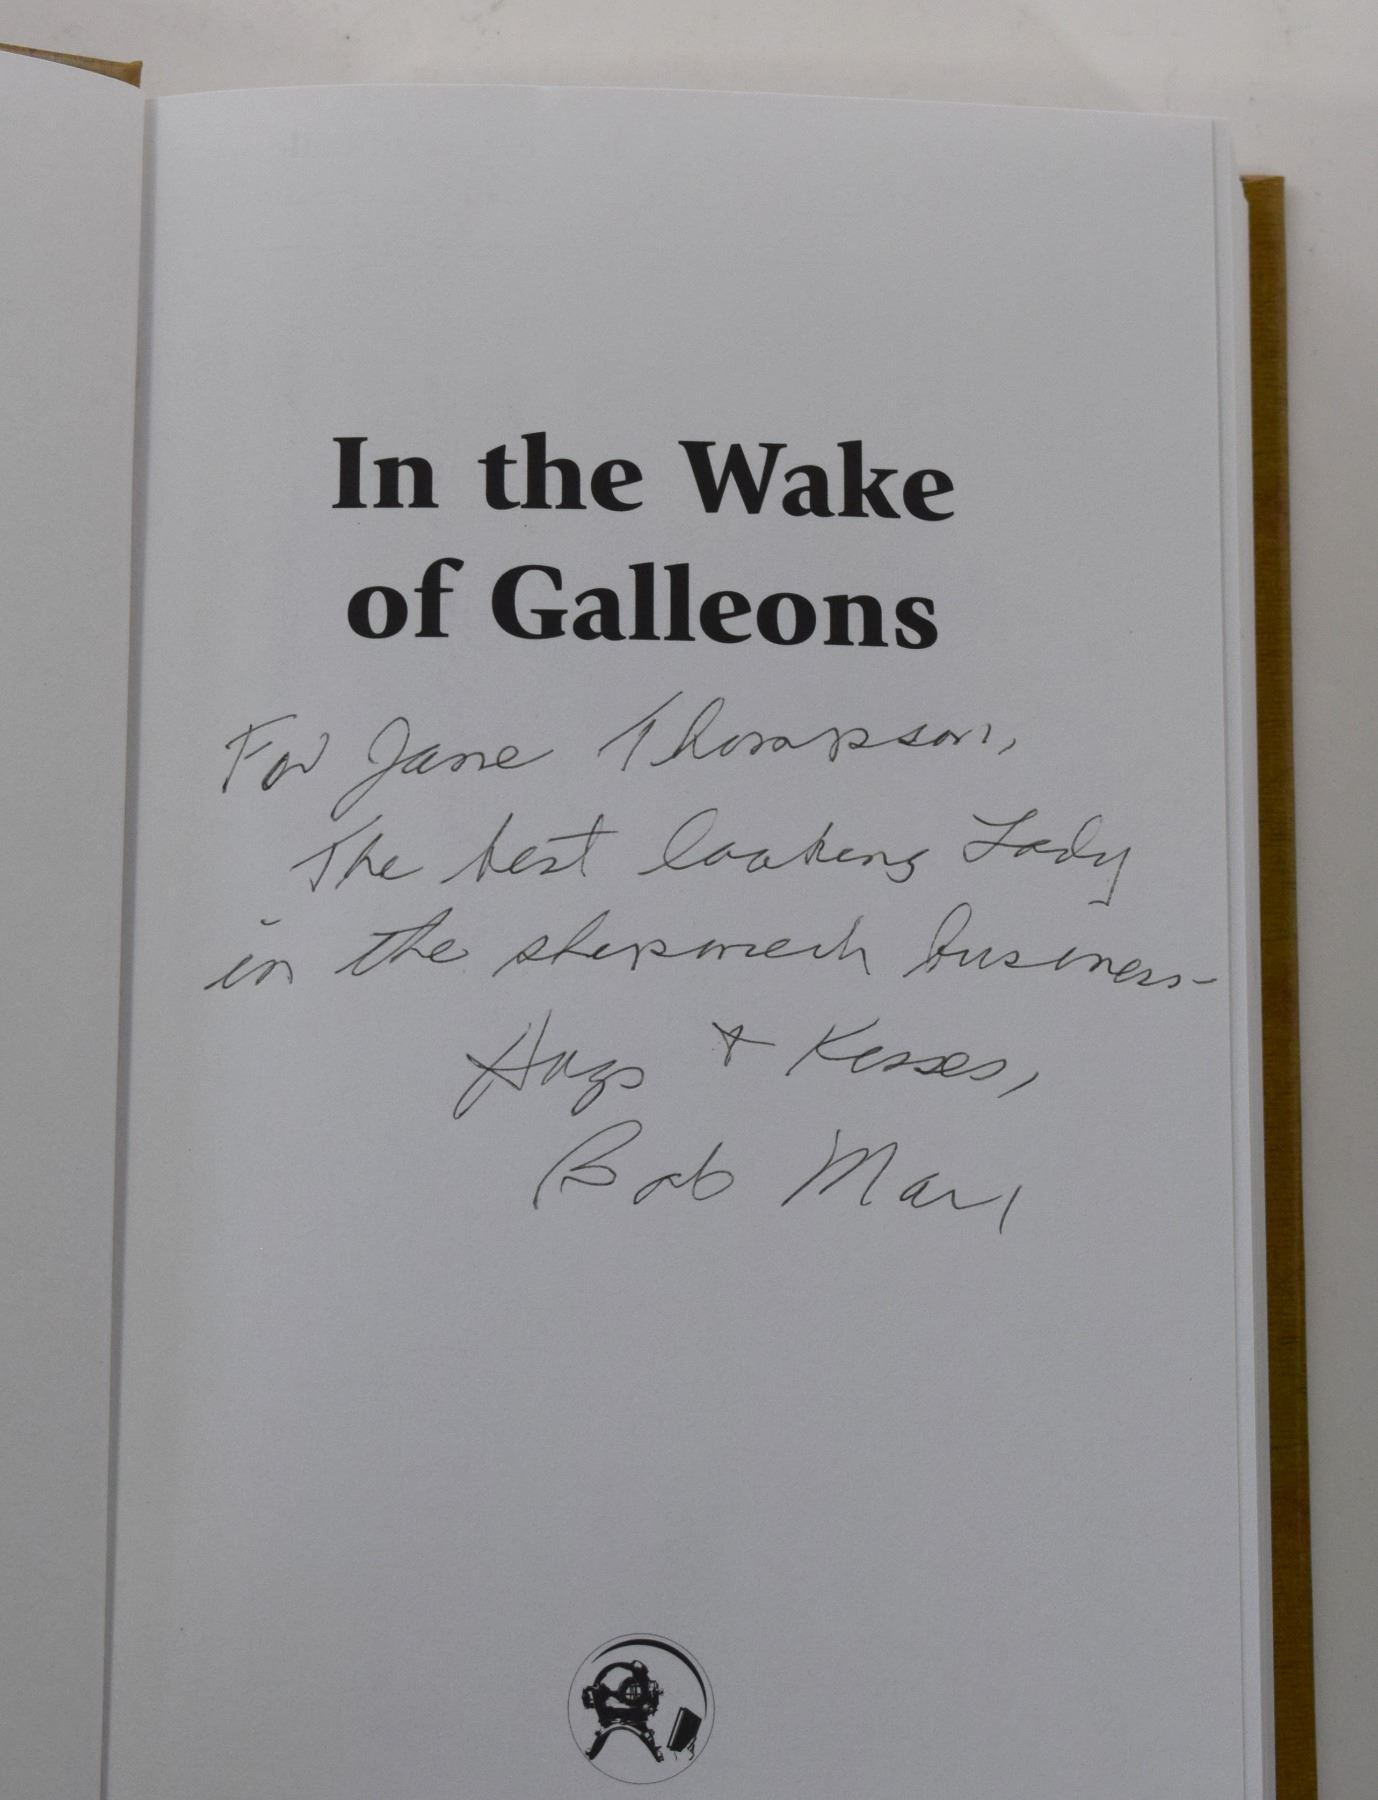 In the Wake
of Galleons
For Jane Thompson,
The best looking Lady
in the shipwreck business-
Hugs + Kisses,
Bob Marx